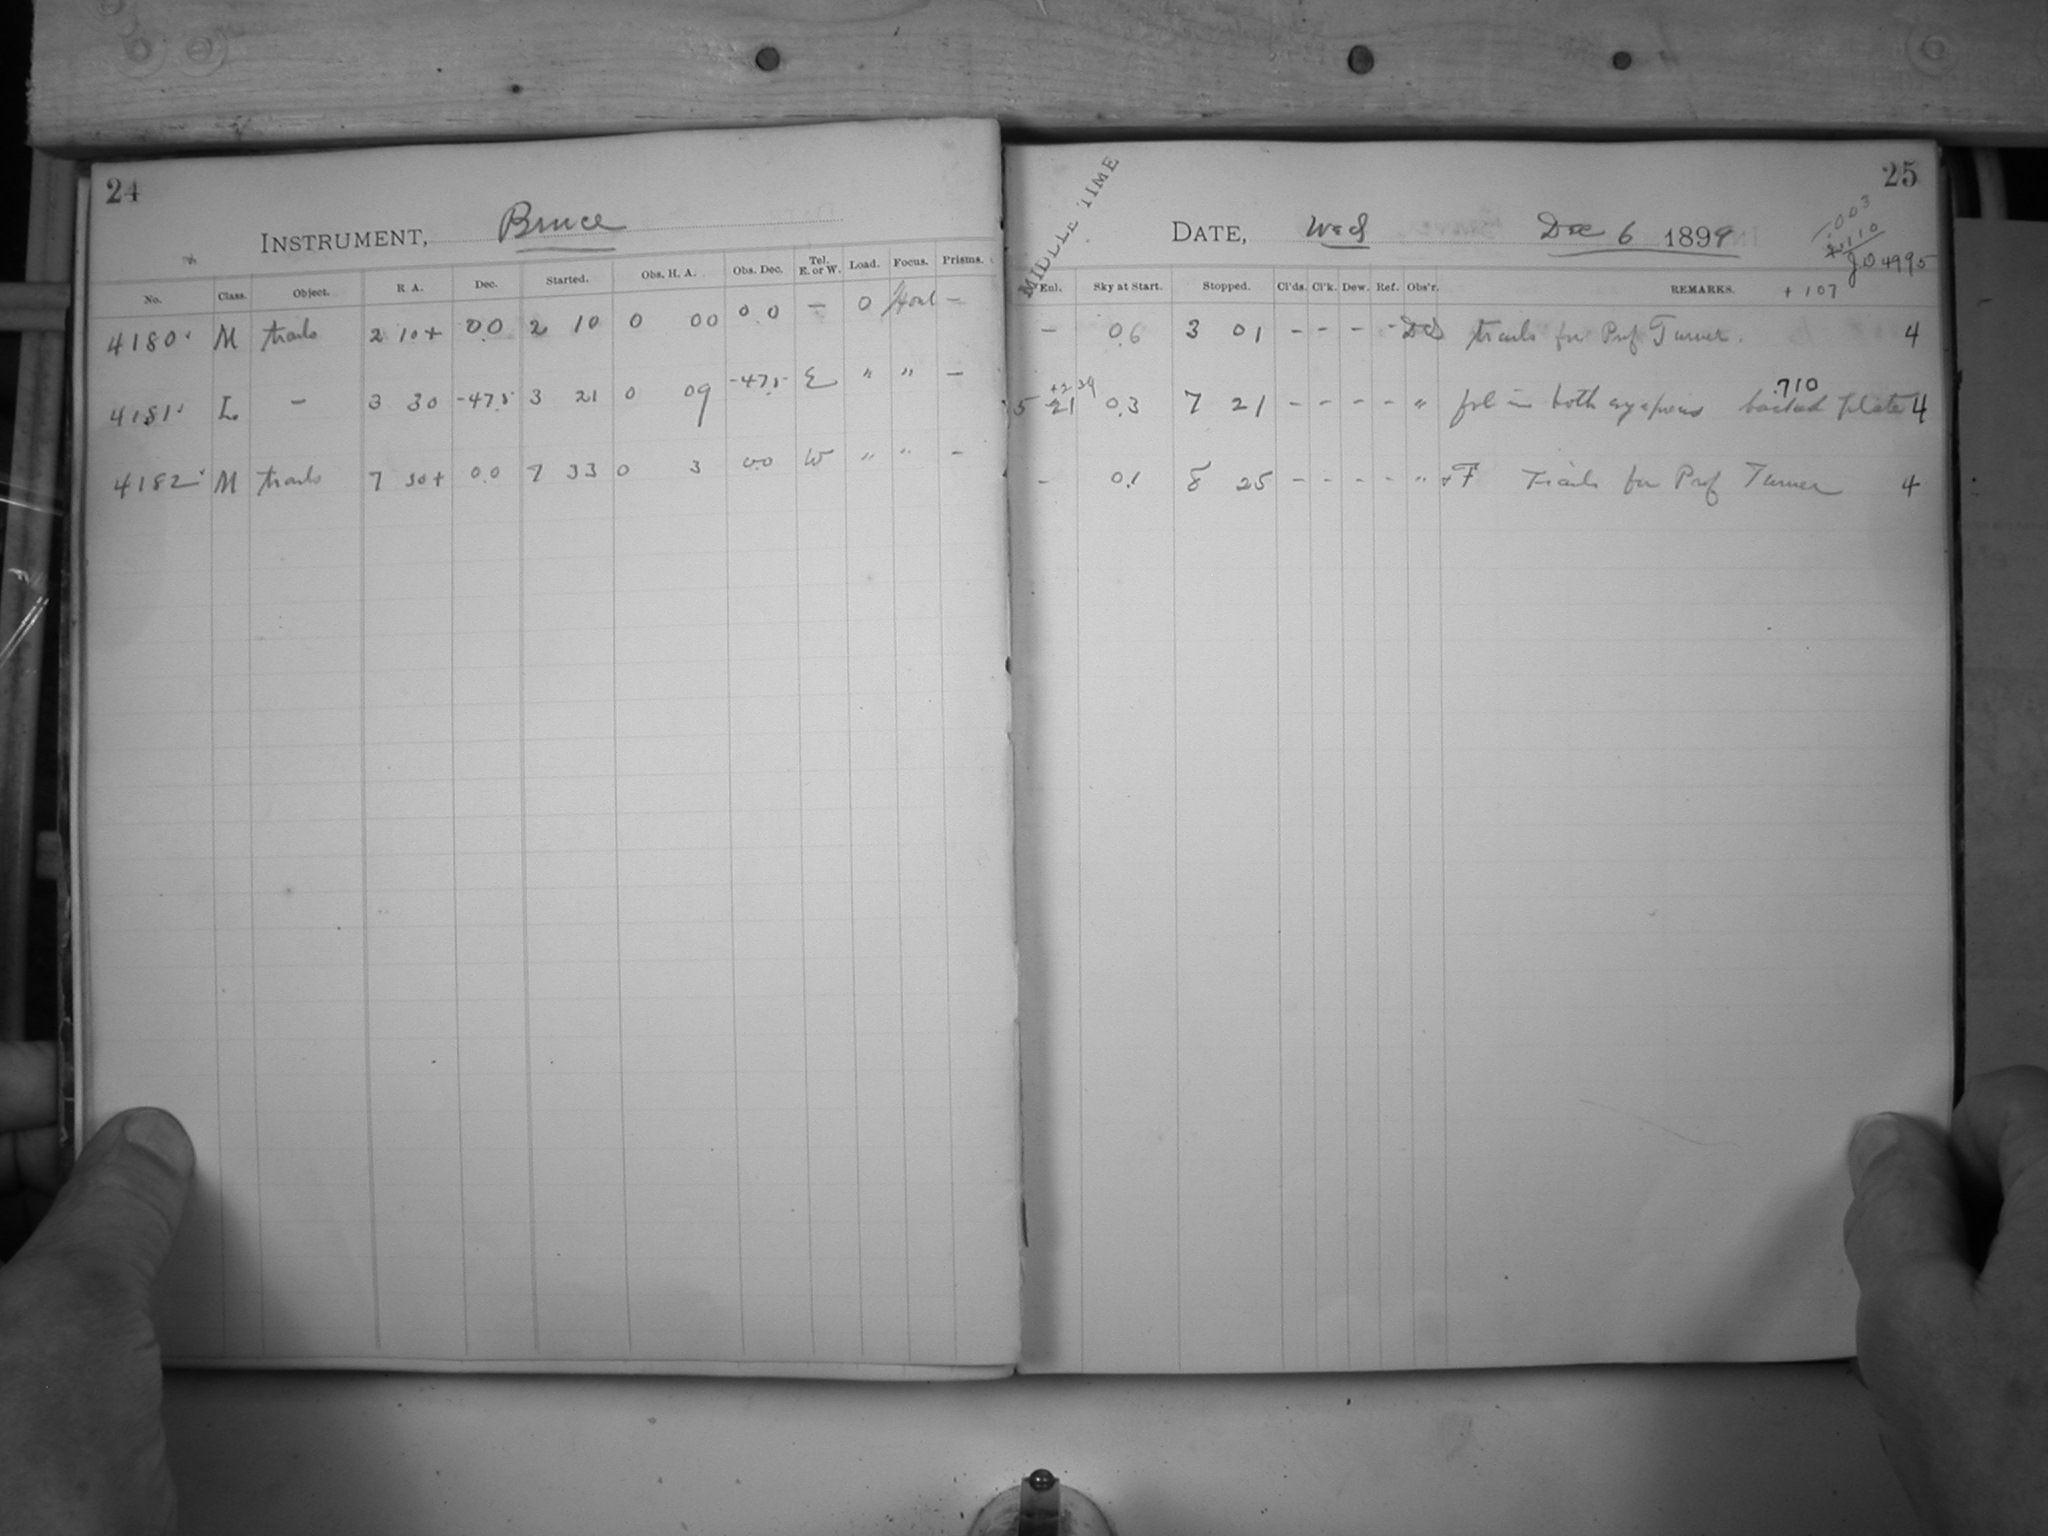 24
INSTRUMENT, Bruce
No. Class. Object. R. A. Dec. Started. Obs. H. A. Obs. Dec. Tel. E. or W. Load. Focus. Prisms.
4180 M trails 2 10+ 0.0 2 10 0 00 0.0 — 0 —
4181 L — 3 30 -47.5 3 21 0 09 -47.5 E " " —
4182 M trails 7 30+ 0.0 7 33 0 3 0.0 W " " —
25
MILLE TIME
DATE, Wed Dec 6 1899
.003
J.D 4995
+ 107
Enl. Sky at Start. Stopped. Cl'ds. Cl'k. Dew. Ref. Obs'r. REMARKS.
— 0.6 3 01 - - - - trails for Prof Turner. 4
+2 39
5 21 0.3 7 21 - - - - " in both backed plate 4
.710
- 0.1 8 25 - - - - " + F Trails for Prof Turner 4